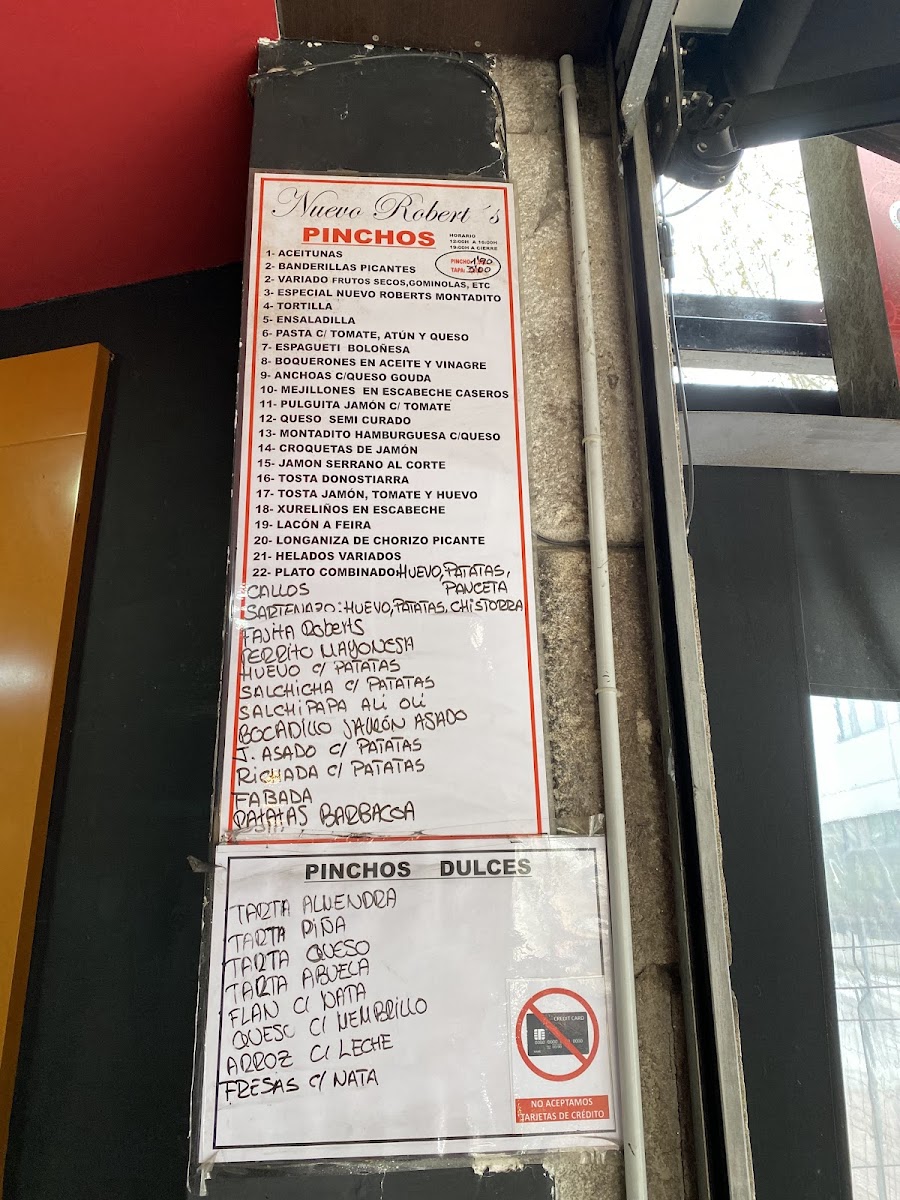 Nuevo Robert´s
PINCHOS
HORARIO
12:00H A 16:00H
19:00H A CIERRE
PINCHO: 1'90
TAPA: 3'00
1- ACEITUNAS
2- BANDERILLAS PICANTES
2- VARIADO FRUTOS SECOS,GOMINOLAS, ETC
3- ESPECIAL NUEVO ROBERTS MONTADITO
4- TORTILLA
5- ENSALADILLA
6- PASTA C/ TOMATE, ATÚN Y QUESO
7- ESPAGUETI BOLOÑESA
8- BOQUERONES EN ACEITE Y VINAGRE
9- ANCHOAS C/QUESO GOUDA
10- MEJILLONES EN ESCABECHE CASEROS
11- PULGUITA JAMÓN C/ TOMATE
12- QUESO SEMI CURADO
13- MONTADITO HAMBURGUESA C/QUESO
14- CROQUETAS DE JAMÓN
15- JAMON SERRANO AL CORTE
16- TOSTA DONOSTIARRA
17- TOSTA JAMÓN, TOMATE Y HUEVO
18- XURELIÑOS EN ESCABECHE
19- LACÓN A FEIRA
20- LONGANIZA DE CHORIZO PICANTE
21- HELADOS VARIADOS
22- PLATO COMBINADO: HUEVO, PATATAS,
PANCETA
CALLOS
SARTENAZO: HUEVO, PATATAS, CHISTORRA
FAJITA Roberts
PERRITO MAYONESA
HUEVO C/ PATATAS
SALCHICHA C/ PATATAS
SALCHIPAPA ALI OLI
BOCADILLO JAMÓN ASADO
J. ASADO C/ PATATAS
RICHADA C/ PATATAS
FABADA
PATATAS BARBACOA
PINCHOS DULCES
TARTA ALMENDRA
TARTA PIÑA
TARTA QUESO
TARTA ABUELA
FLAN C/ NATA
QUESO C/ MEMBRILLO
ARROZ C/ LECHE
FRESAS C/ NATA
CREDIT CARD
NO ACEPTAMOS
TARJETAS DE CRÉDITO